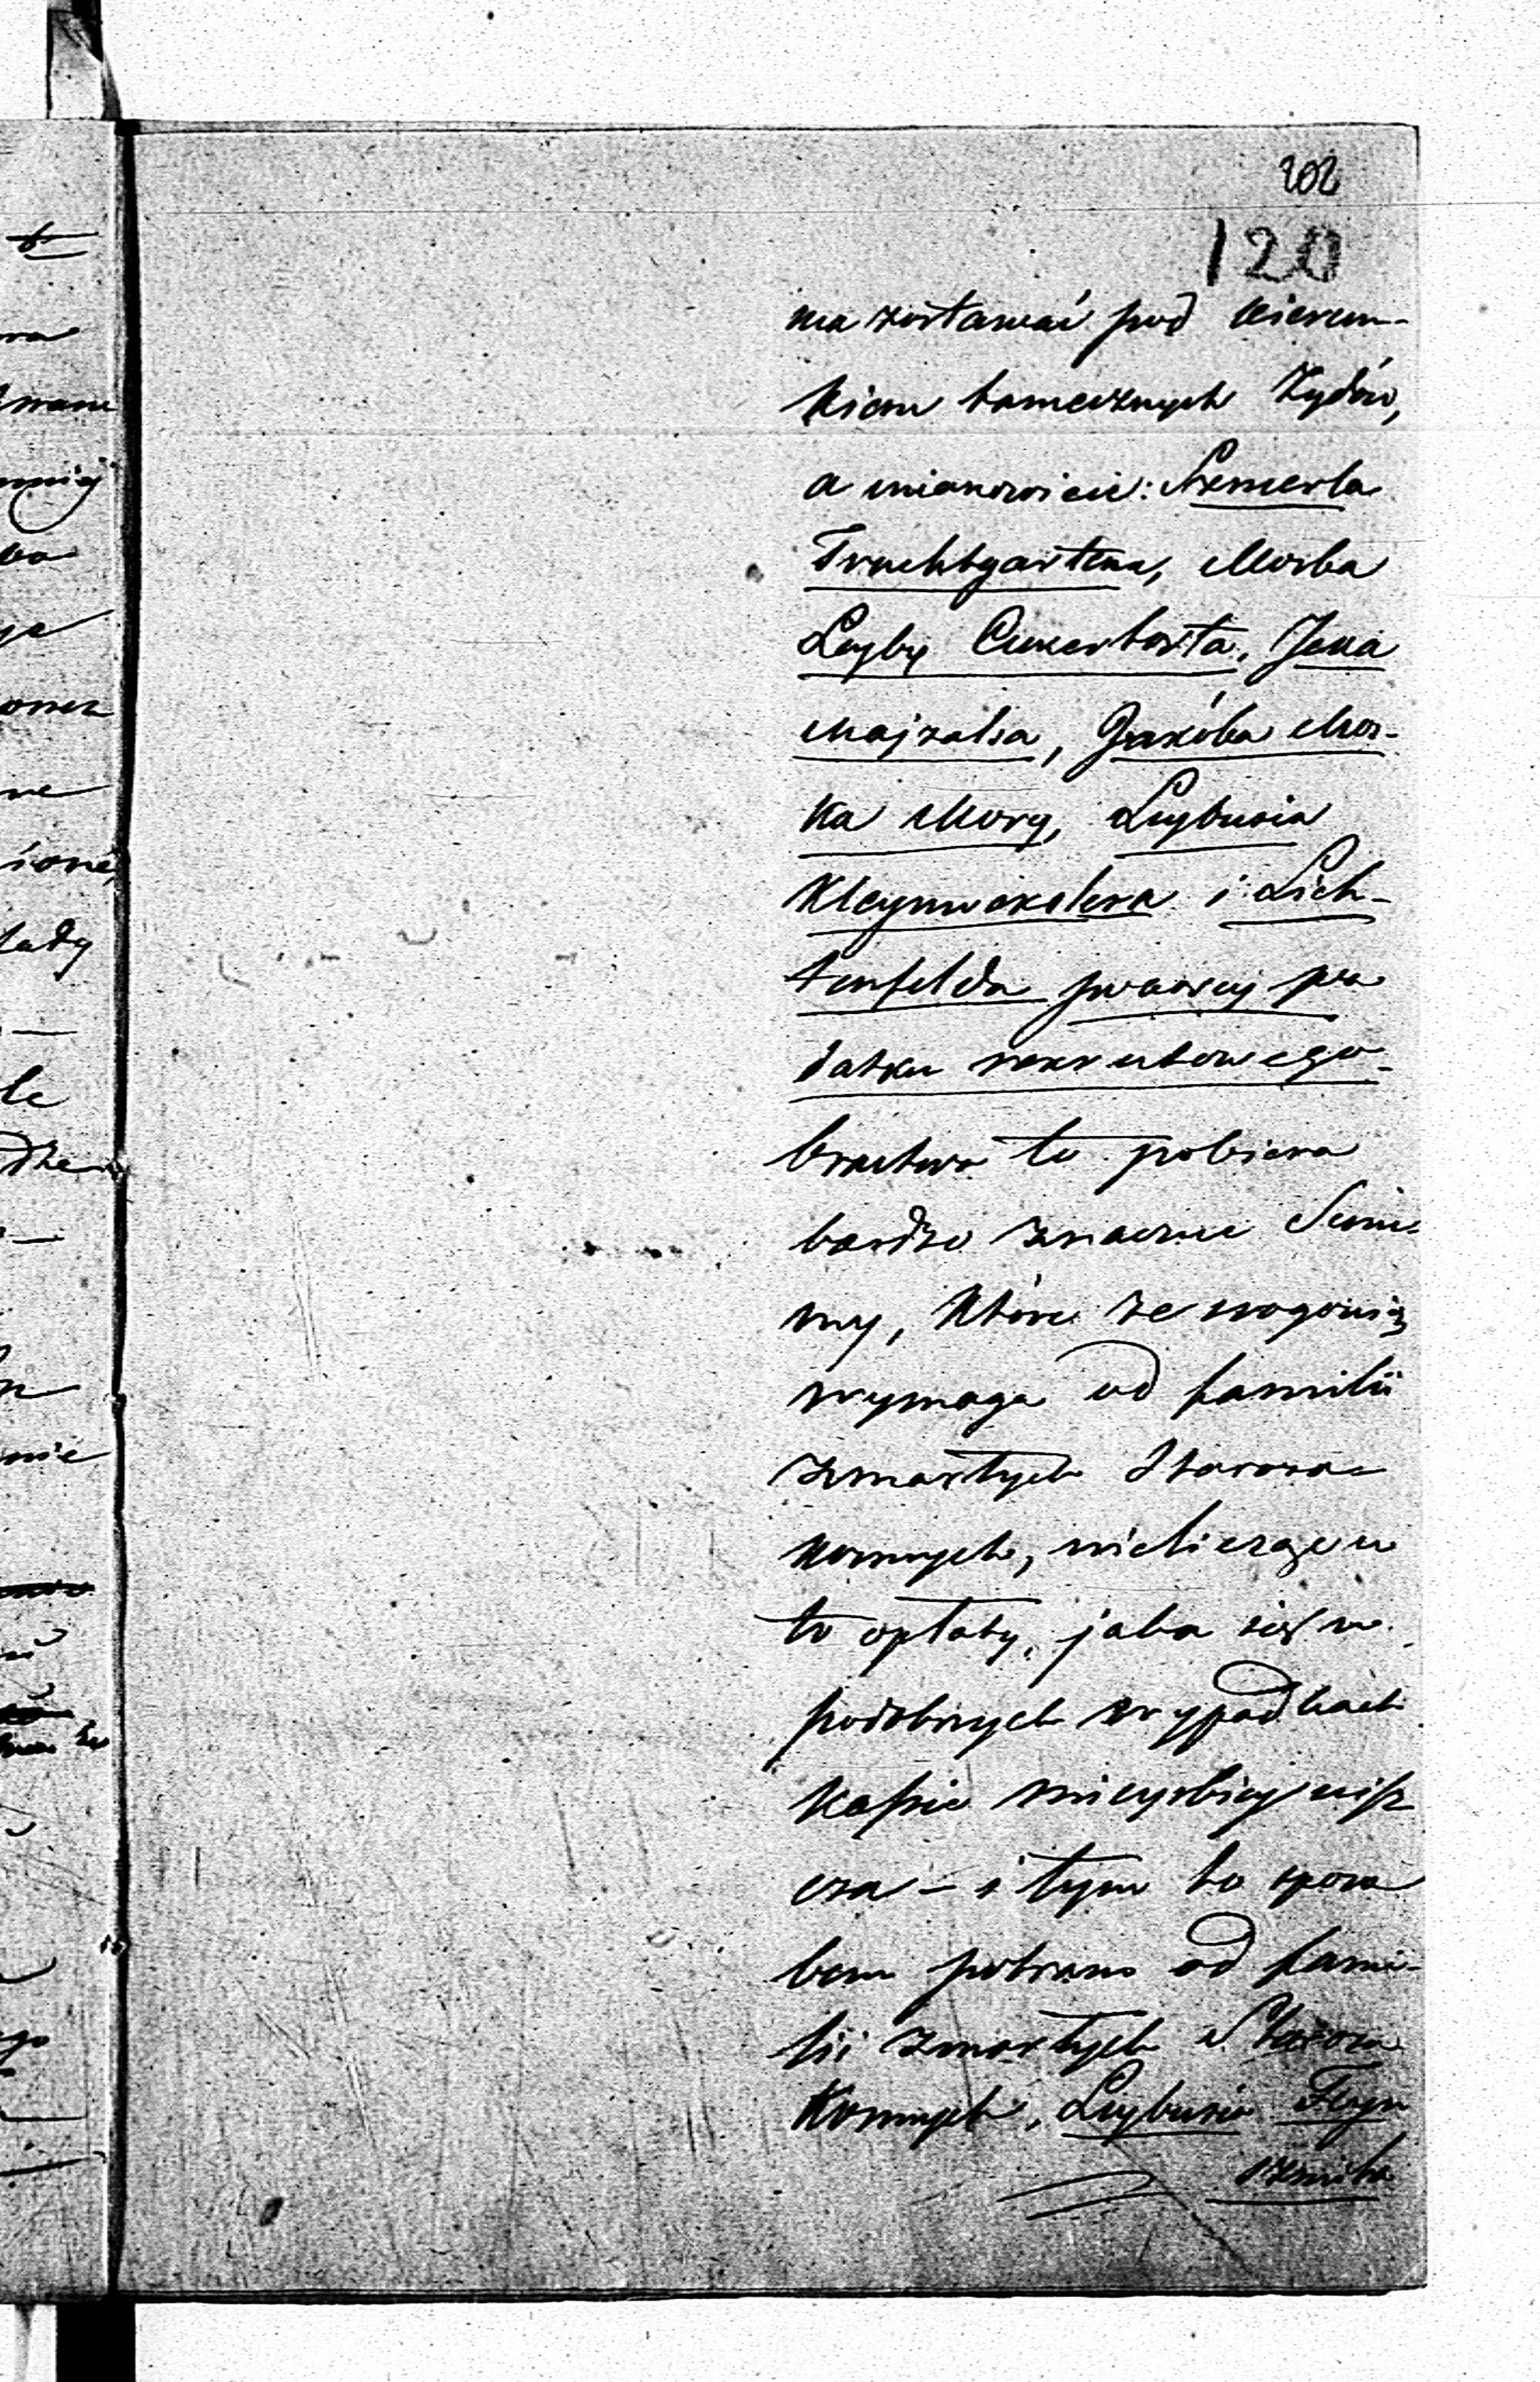 202
120
ma zostawać pod kierun-
kiem tamecznych Żydów,
a mianowicie: Szmerla
Fruchtgartena, Moska
Leyby Cukerborta, Jcka
Majzelsa, Jakóba Mos-
ka Mory, Leybusia
Kleynwexlera i Lich-
tenfelda pisarzy po
datku rekrutowego.
bractwo to pobiera
bardzo znaczne Sum-
my, które ze srogością
wymaga od familii
zmarłych Staroza-
konnych, nielicząc w
to opłaty, jaka się w
podobnych wypadkach
kassie mieyskiey uisz
cza – i tym to sposo
bem pobrano od fami-
lii zmarłych Staroza
konnych, Leybusia Feyn
szmita